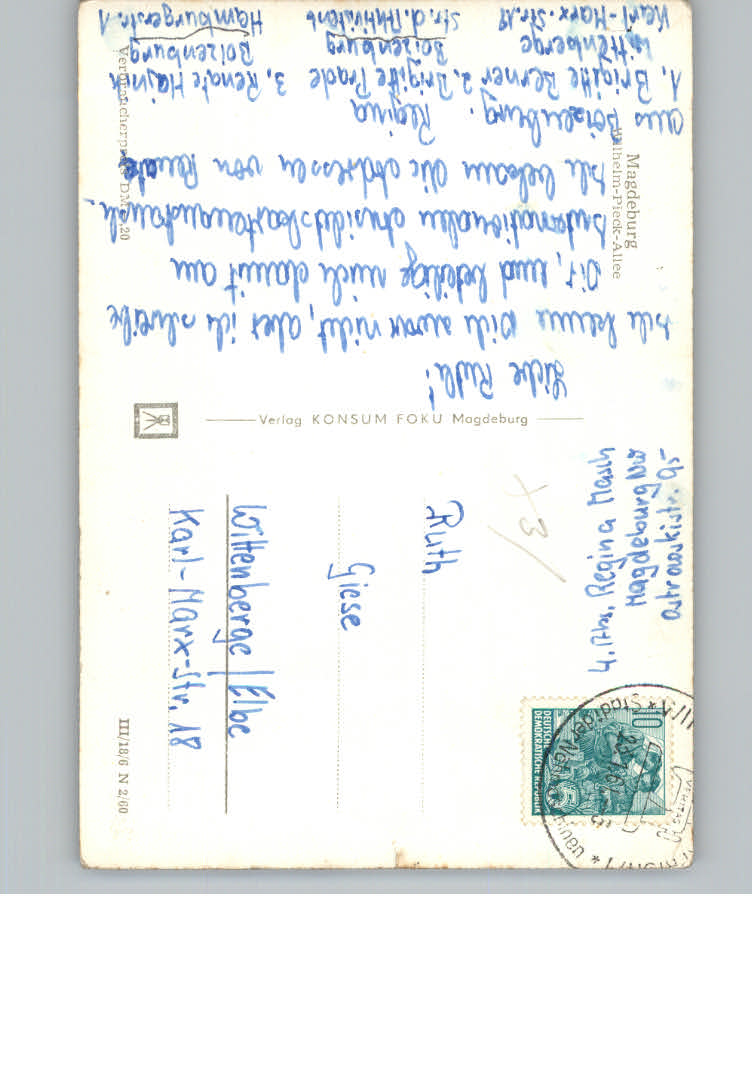 Magdeburg
Wilhelm-Pieck-Allee
Liebe Ruth!
Ich kenne Dich zwar nicht, aber ich schreibe
Dir, und beteilige mich damit am
internationalen Ansichtskartenaustausch.
Ich bekam die Adressen von Renate
aus Boizenburg.
Regina
1. Brigitte Berner 2. Brigitte Prade 3. Renate Hajnich
Wittenberge Boizenburg Boizenburg
Karl-Marx-Str. 18 Str. d. Aktivisten Hamburgerstr. 1
Verbraucherpreis DM 0,20
Verlag KONSUM FOKU Magdeburg
4. Regina Marsch
Magdeburg
Ostrowskistr. 95
43/
Ruth
Giese
Wittenberge / Elbe
Karl-Marx-Str. 18
III/18/6 N 2/60
10
DEUTSCHE
DEMOKRATISCHE REPUBLIK
VERITAS